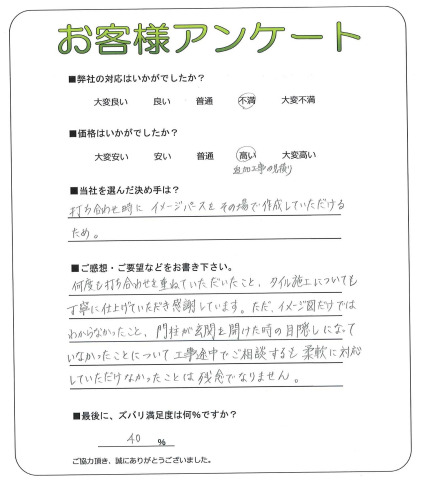 お客様アンケート
■弊社の対応はいかがでしたか？
大変良い 良い 普通 不満 大変不満
■価格はいかがでしたか？
大変安い 安い 普通 高い 大変高い
追加工事の見積り
■当社を選んだ決め手は？
打ち合わせ時に イメージパースを その場で作成していただける
ため。
■ご感想・ご要望などをお書き下さい。
何度も打ち合わせを重ねていただいたこと、タイル施工についても
丁寧に仕上げていただき感謝しています。ただ、イメージ図だけでは
わからなかったこと、門柱が玄関を開けた時の目隠しになって
いなかったことについて 工事途中でご相談するも 柔軟に対応
していただけなかったことは 残念でなりません。
■最後に、ズバリ満足度は何％ですか？
40 ％
ご協力頂き、誠にありがとうございました。